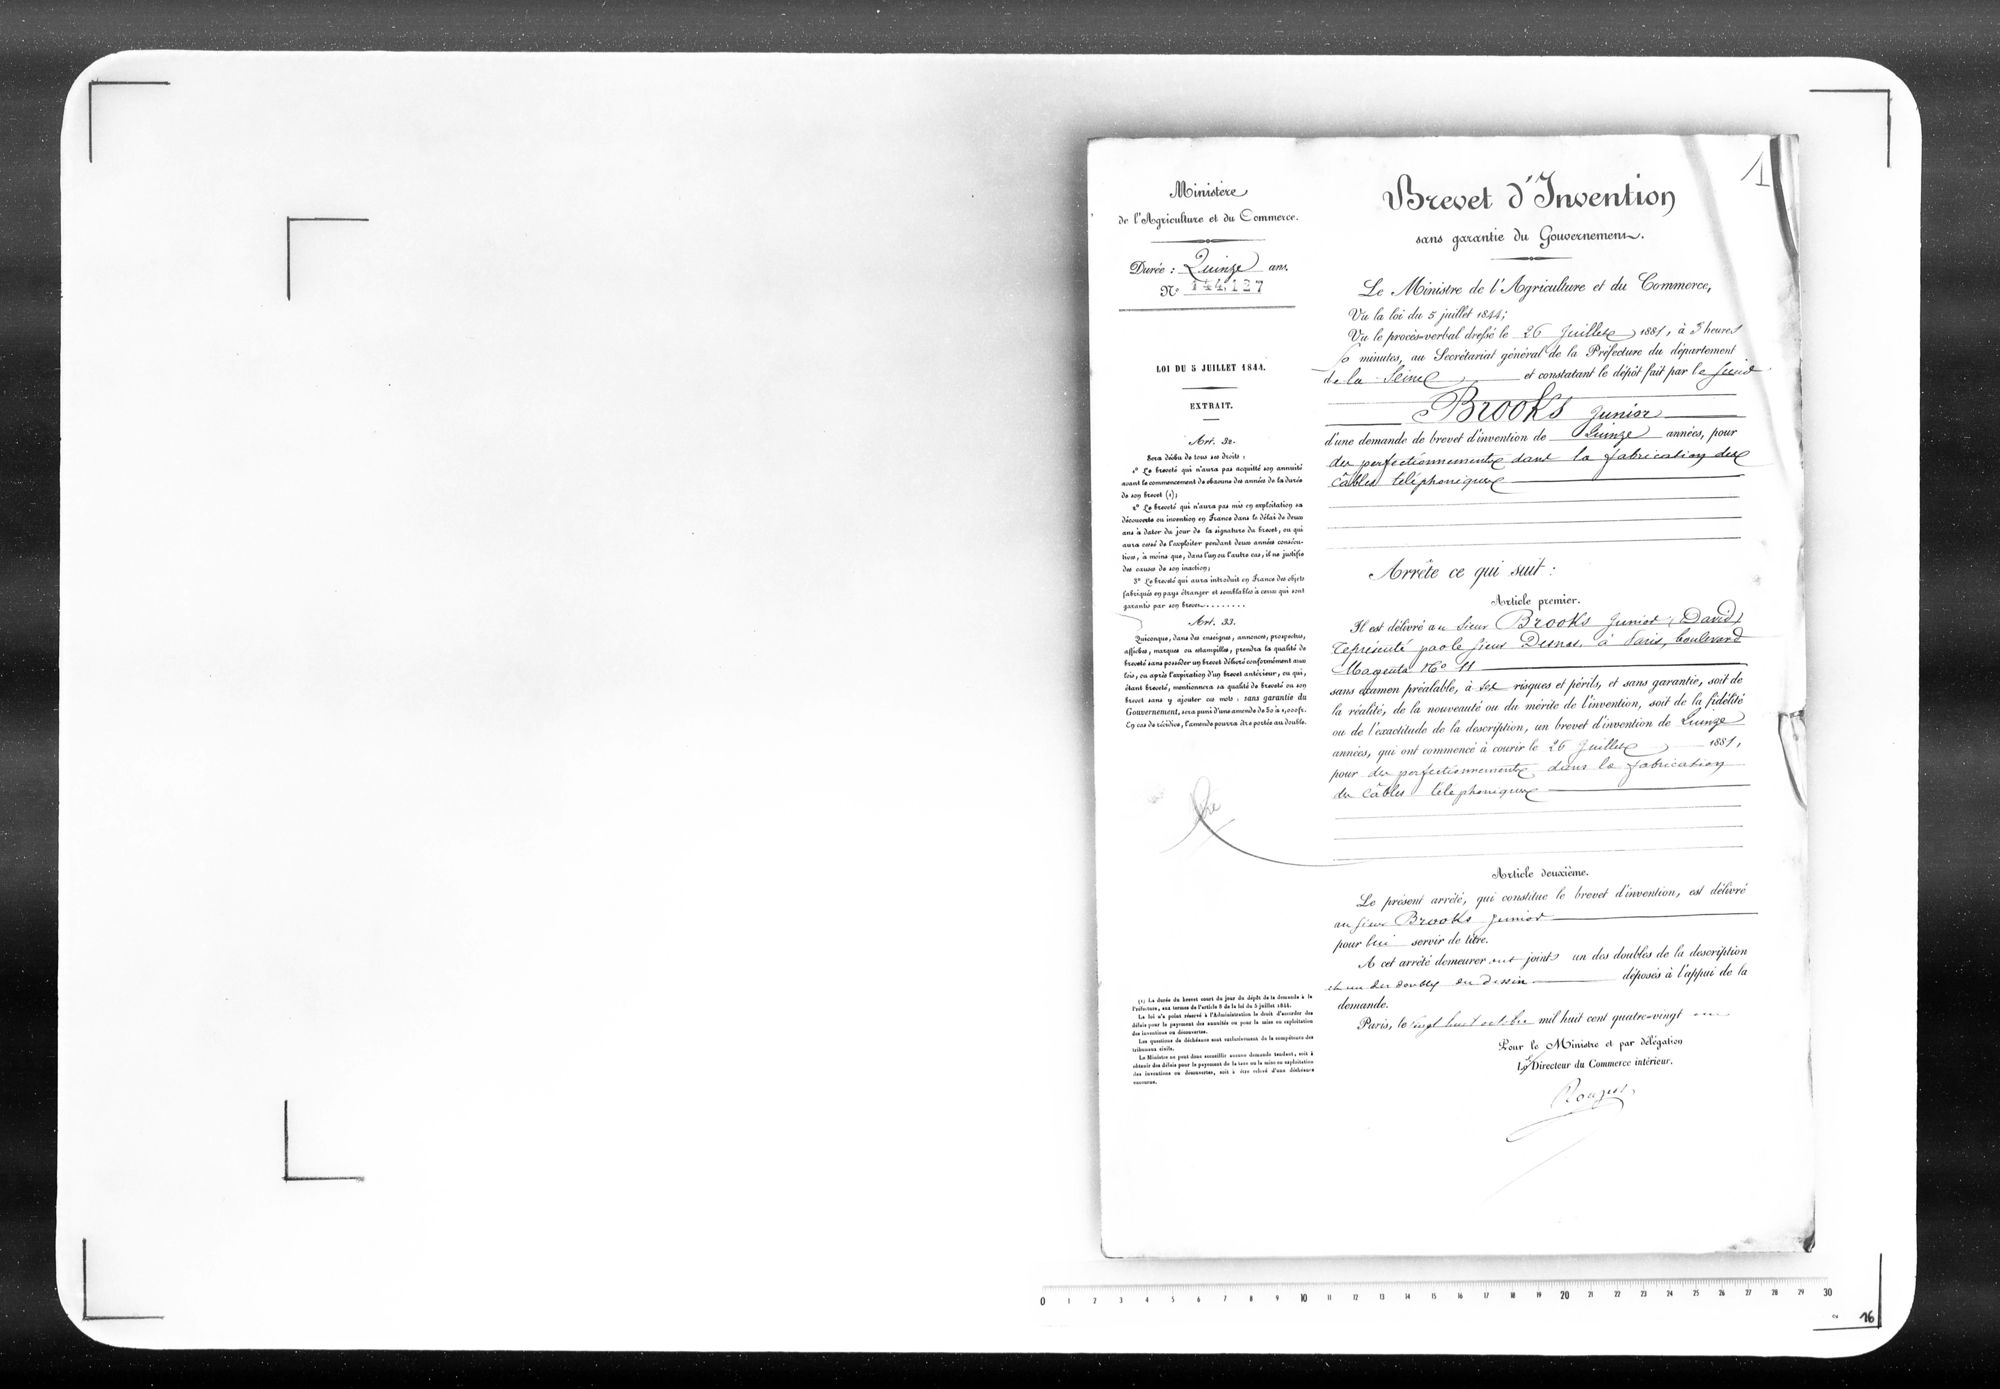 1
Ministère
de l'Agriculture et du Commerce.
Durée : Quinze ans.
N° 144,127
LOI DU 5 JUILLET 1844.
EXTRAIT.
Art. 32.
Sera déchu de tous ses droits :
1° Le breveté qui n'aura pas acquitté son annuité
avant le commencement de chacune des années de la durée
de son brevet (1);
2° Le breveté qui n'aura pas mis en exploitation sa
découverte ou invention en France dans le délai de deux
ans à dater du jour de la signature du brevet, ou qui
aura cessé de l'exploiter pendant deux années consécu-
tives, à moins que, dans l'un ou l'autre cas, il ne justifie
des causes de son inaction;
3° Le breveté qui aura introduit en France des objets
fabriqués en pays étranger et semblables à ceux qui sont
garantis par son brevet........
Art. 33.
Quiconque, dans des enseignes, annonces, prospectus,
affiches, marques ou estampilles, prendra la qualité de
breveté sans posséder un brevet délivré conformément aux
lois, ou après l'expiration d'un brevet antérieur, ou qui,
étant breveté, mentionnera sa qualité de breveté ou son
brevet sans y ajouter ces mots : sans garantie du
Gouvernement, sera puni d'une amende de 50 à 1,000 fr.
En cas de récidive, l'amende pourra être portée au double.
(1) La durée du brevet court du jour du dépôt de la demande à la
Préfecture, aux termes de l'article 8 de la loi du 5 juillet 1844.
La loi n'a point réservé à l'Administration le droit d'accorder des
délais pour le payement des annuités ou pour la mise en exploitation
des inventions ou découvertes.
Les questions de déchéance sont exclusivement de la compétence des
tribunaux civils.
Le Ministre ne peut donc accueillir aucune demande tendant, soit à
obtenir des délais pour le payement de la taxe ou la mise en exploitation
des inventions ou découvertes, soit à être relevé d'une déchéance
encourue.
Brevet d'Invention
sans garantie du Gouvernement.
Le Ministre de l'Agriculture et du Commerce,
Vu la loi du 5 juillet 1844;
Vu le procès-verbal dressé le 26 Juillet 1881, à 3 heures
minutes, au Secrétariat général de la Préfecture du département
de la Seine et constatant le dépôt fait par le sieur
Brooks junior
d'une demande de brevet d'invention de Quinze années, pour
des perfectionnements dans la fabrication des
câbles téléphoniques
Arrête ce qui suit :
Article premier.
Il est délivré au sieur Brooks junior (David)
représenté par le sieur Desnos, à Paris, boulevard
Magenta N° 11
sans examen préalable, à ses risques et périls, et sans garantie, soit de
la réalité, de la nouveauté ou du mérite de l'invention, soit de la fidélité
ou de l'exactitude de la description, un brevet d'invention de Quinze
années, qui ont commencé à courir le 26 Juillet 1881,
pour des perfectionnements dans la fabrication
des câbles téléphoniques
Article deuxième.
Le présent arrêté, qui constitue le brevet d'invention, est délivré
au sieur Brooks junior
pour lui servir de titre.
A cet arrêté demeureront joints un des doubles de la description
et un des doubles du dessin déposés à l'appui de la
demande.
Paris, le vingt huit octobre mil huit cent quatre-vingt un
Pour le Ministre et par délégation
Le Directeur du Commerce intérieur.
0 1 2 3 4 5 6 7 8 9 10 11 12 13 14 15 16 17 18 19 20 21 22 23 24 25 26 27 28 29 30
16